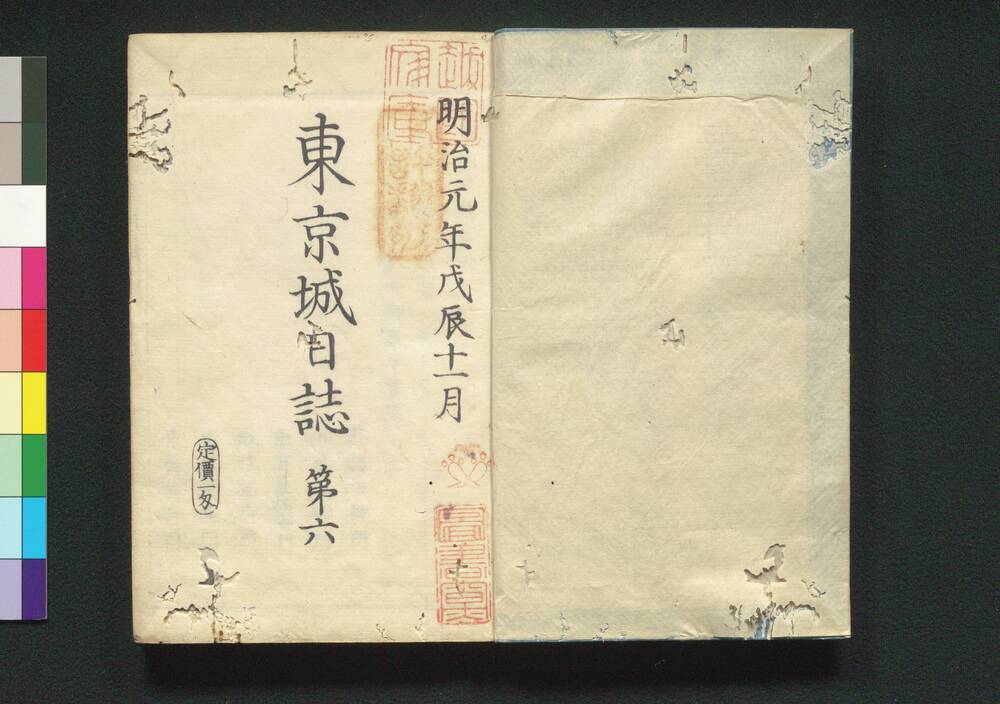 明治元年戊辰十一月
東京城日誌 第六
定價一匁